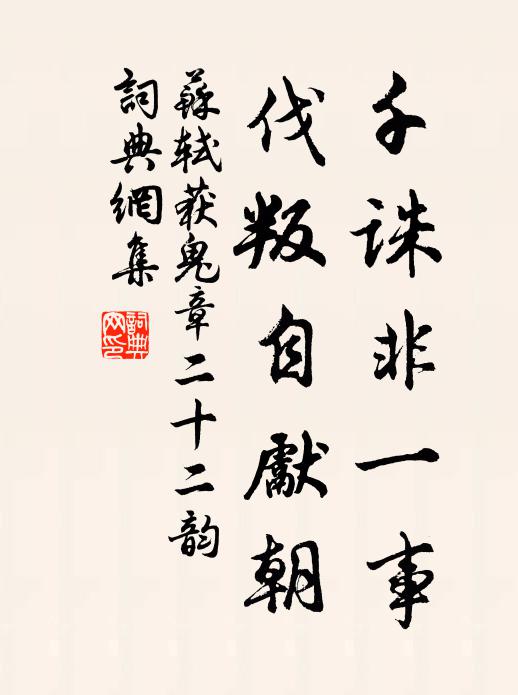 千誅非一事
伐叛自獻朝
蘇軾获鬼章二十二韵
詞典網集
詞典網印